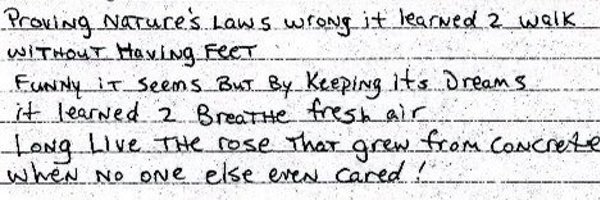 Proving Nature's Laws wrong it learned 2 walk
without Having Feet
Funny it seems But By Keeping its Dreams
it learned 2 Breathe fresh air
Long Live The rose That grew from Concrete
when no one else even cared!